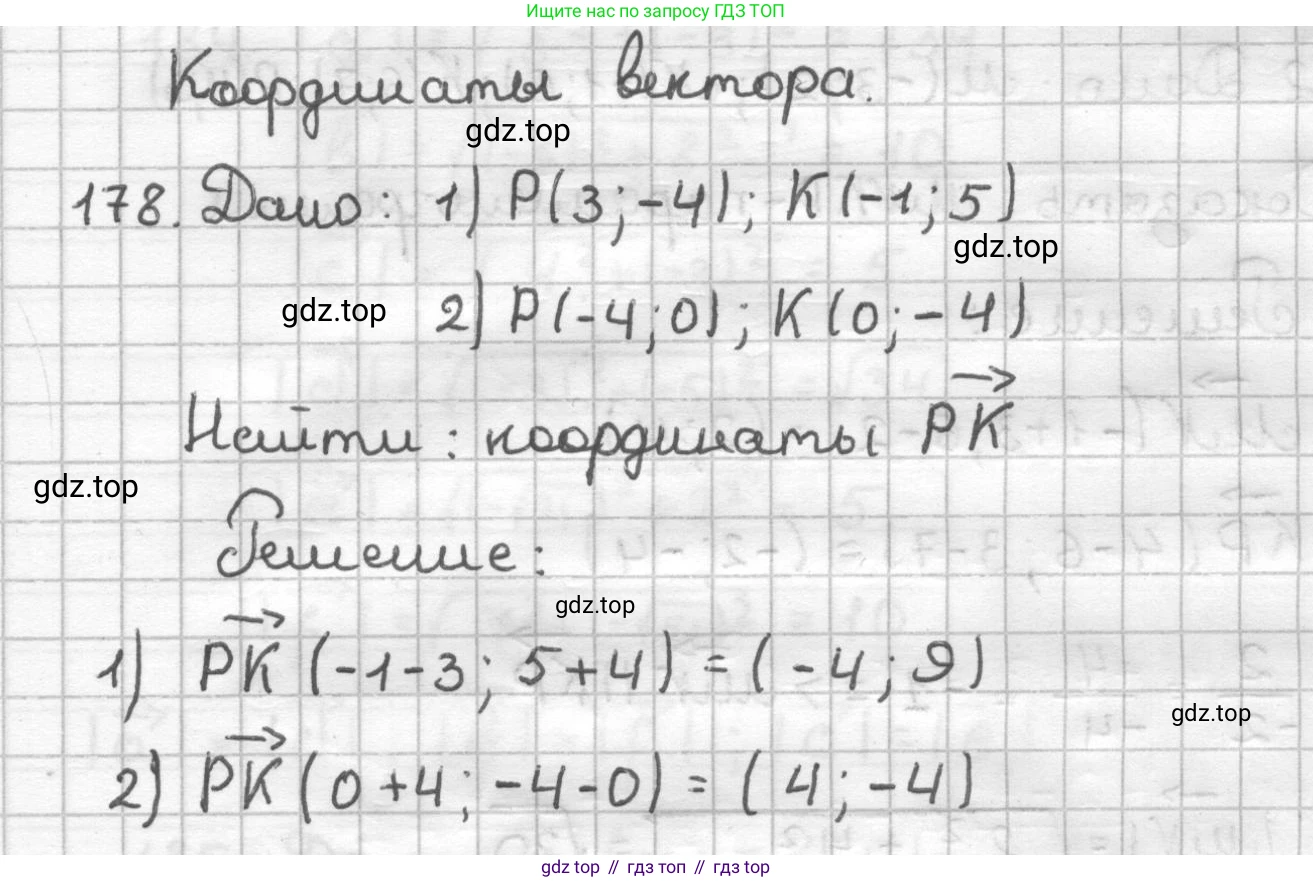 Ищите нас по запросу ГДЗ ТОП
Координаты вектора.
gdz.top
178. Дано: 1) P(3;-4); K(-1;5)
gdz.top
gdz.top 2) P(-4;0); K(0;-4)
Найти: координаты \overrightarrow{PK}
gdz.top
Решение:
gdz.top
1) \overrightarrow{PK} (-1-3; 5+4) = (-4; 9)
gdz.top
2) \overrightarrow{PK} (0+4; -4-0) = (4; -4)
gdz top // гдз топ // гдз top